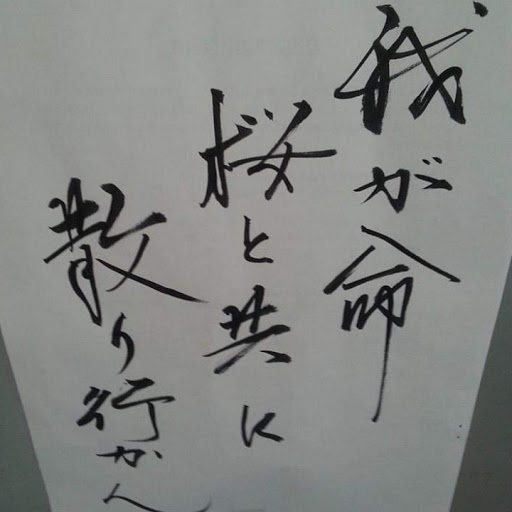 我が命
桜と共に
散り行かん